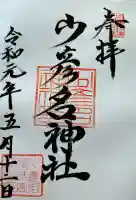 奉拝
少彦名神社
令和元年五月十一日